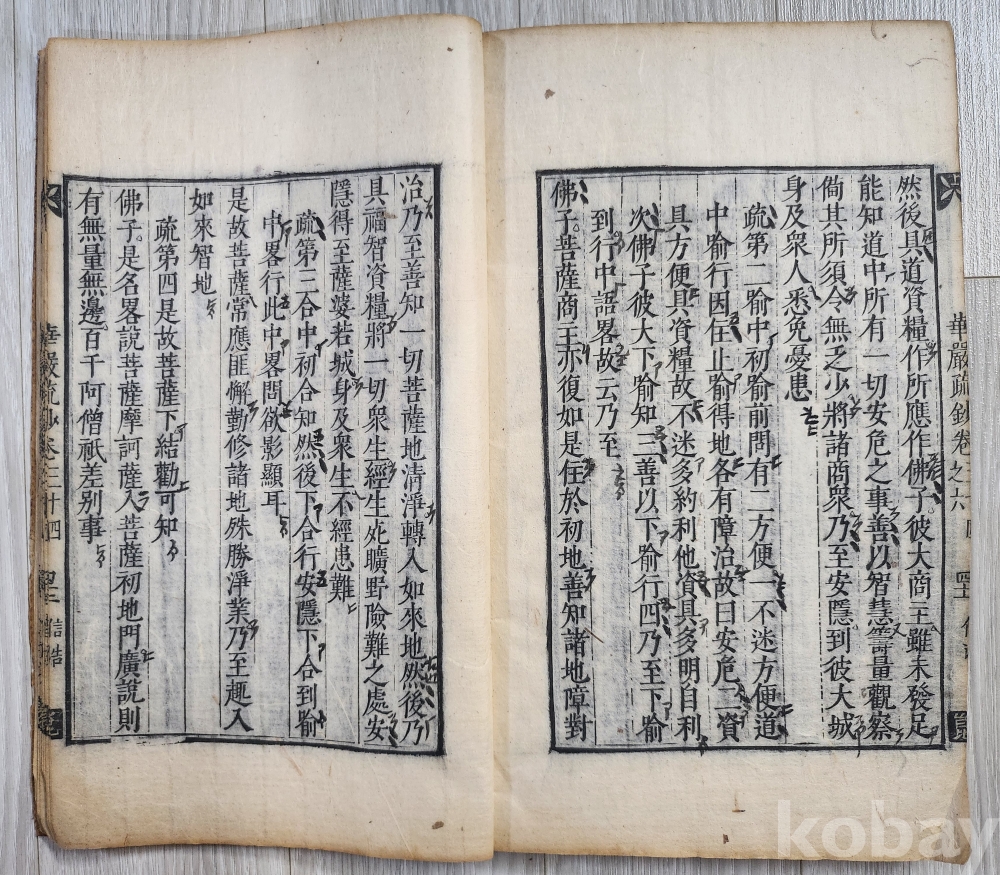 然後具道資糧作所應作佛子彼大商主雖未發足
能知道中所有一切安危之事善以智慧籌量觀察
備其所須令無乏少將諸商衆乃至安隱到彼大城
身及衆人悉免憂患
疏第二喻中初喻前問有二方便一不迷方便道
中喻行因住止喻得地各有障治故曰安危二資
具方便具資糧故不迷多約利他資具多明自利
次佛子彼大下喻知三善以下喻行四乃至下喻
到行中語畧故云乃至
佛子菩薩商主亦復如是住於初地善知諸地障對
華嚴疏鈔卷三
之六
治乃至善知一切菩薩地清淨轉入如來地然後乃
具福智資糧將一切衆生經生死曠野險難之處安
隱得至薩婆若城身及衆生不經患難
疏第三合中初合知然後下合行安隱下合到喻
中畧行此中畧問欲影顯耳
是故菩薩常應匪懈勤修諸地殊勝淨業乃至趣入
如來智地
疏第四是故菩薩下結勸可知
佛子是名畧說菩薩摩訶薩入菩薩初地門廣說則
有無量無邊百千阿僧祇差別事
華嚴疏鈔卷三十四
kobay